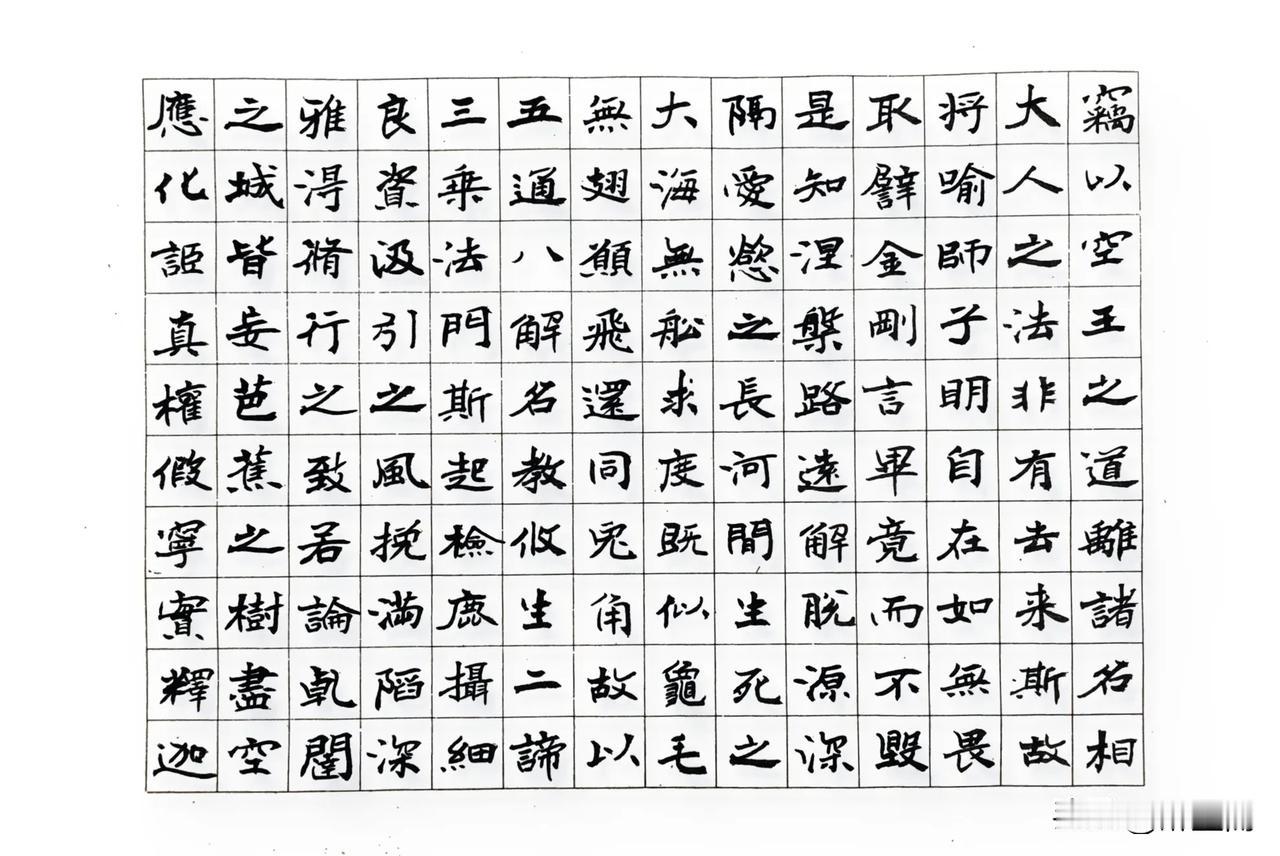 竊以空王之道離諸名相
大人之法非有去来斯故
将喻師子明自在如無畏
取譬金剛言畢竟而不毀
是知涅槃路遠解脱源深
隔愛慾之長河間生死之
大海無舩求度既似龜毛
無翅願飛還同兎角故以
五通八解名教攸生二諦
三乗法門斯起檢鹿攝細
良資汲引之風挽滿陷深
雅淂脩行之致若論乹闥
之城皆妄芭蕉之樹盡空
應化詎真權假寧實釋迦